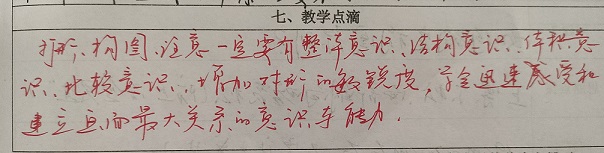 七、教学点滴
打形、构图、注意一定要有整体意识、结构意识、体积意
识、比较意识、增加对形的敏锐度,学会迅速感受和
建立画面最大关系的意识与能力.